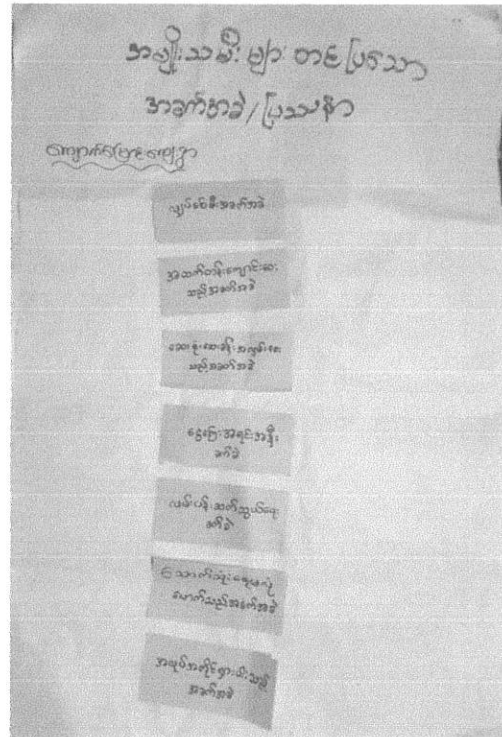 အမျိုးသမီး များ တင်ပြသော
အခက်အခဲ/ပြဿနာ
ကျောက်မြောင်းကျေးရွာ
လျှပ်စစ်မီးအခက်အခဲ
အထက်တန်းကျောင်းဝေး
သည့်အခက်အခဲ
ဆေးရုံဆေးခန်းအလှမ်းဝေး
သည့်အခက်အခဲ
ငွေကြေးအရင်းအနှီး
ခက်ခဲ
လမ်းပန်းဆက်သွယ်ရေး
ခက်ခဲ
သောက်သုံးရေမလုံ
လောက်သည့်အခက်အခဲ
အလုပ်အကိုင်ရှားပါးသည့်
အခက်အခဲ